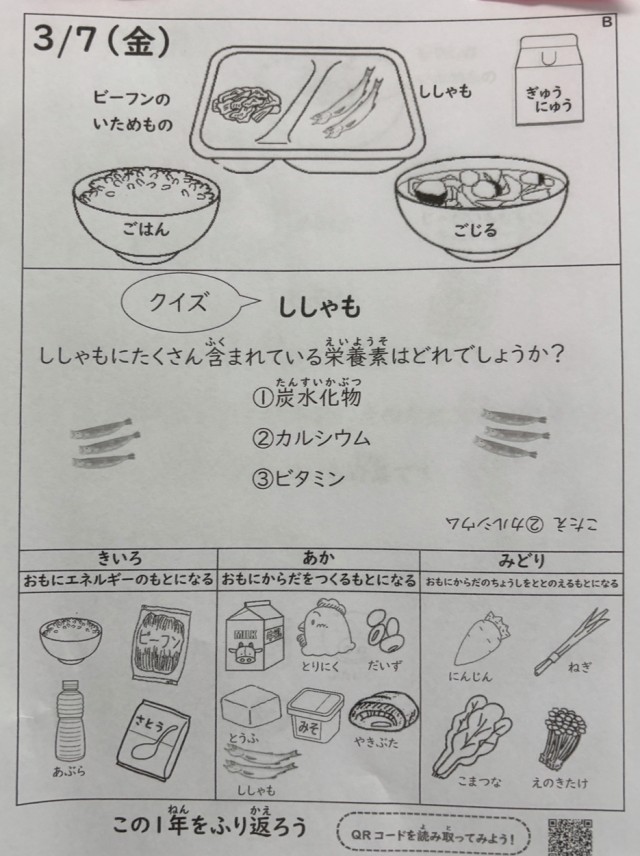 B
3/7(金)
ビーフンの
いためもの
ししゃも
ぎゅう
にゅう
ごはん
ごじる
クイズ
ししゃも
ししゃもにたくさん含まれている栄養素はどれでしょうか?
ふく
えいようそ
たんすいかぶつ
①炭水化物
②カルシウム
③ビタミン
こたえ ②カルシウム
きいろ
あか
みどり
おもにエネルギーのもとになる
おもにからだをつくるもとになる
おもにからだのちょうしをととのえるもとになる
ビーフン
あぶら
さとう
MILK
とりにく
だいず
とうふ
みそ
やきぶた
ししゃも
にんじん
ねぎ
こまつな
えのきたけ
ねん
かえ
この1年をふり返ろう
よ
と
QRコードを読み取ってみよう!